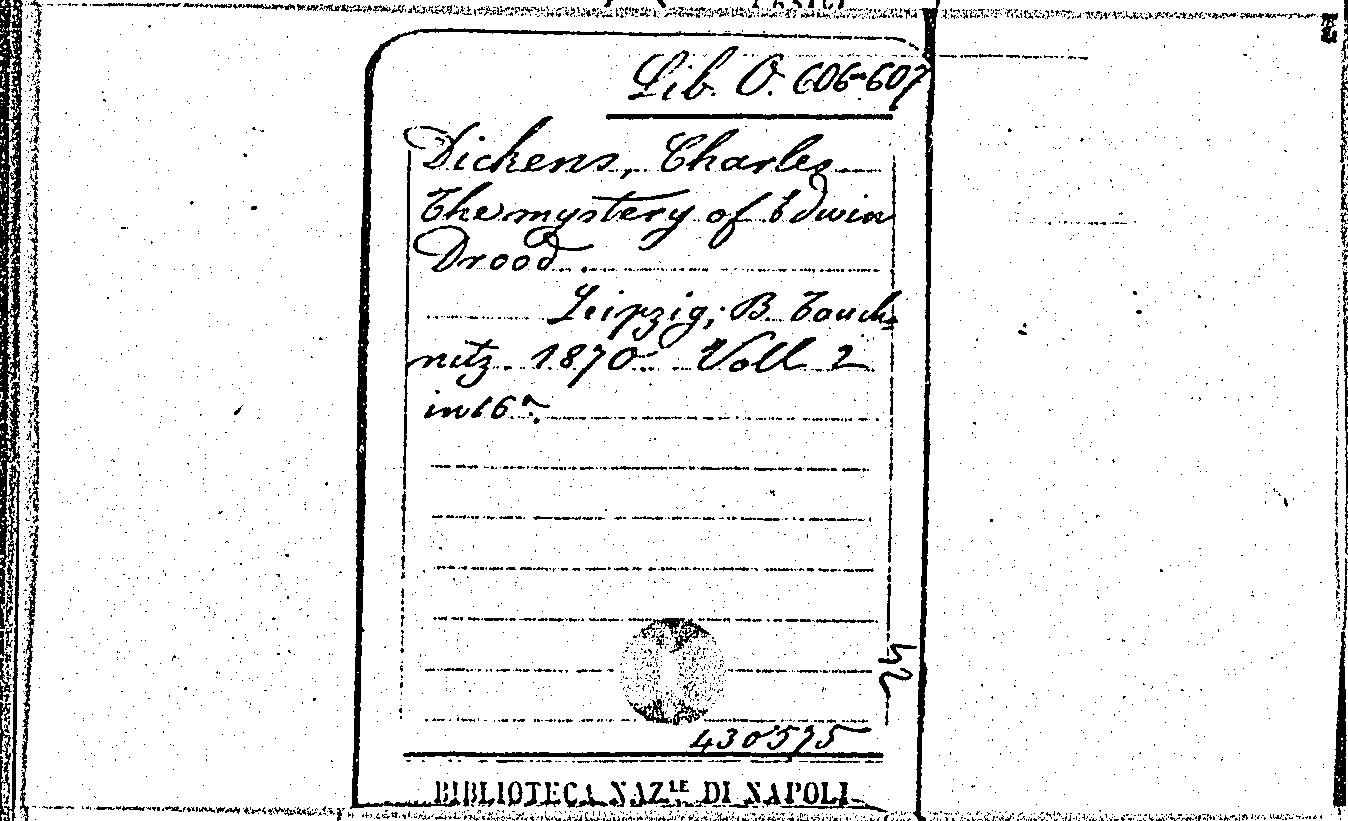 Lib. O. 606-607
Dickens, Charles
The mystery of Edwin
Drood
Leipzig; B. Tauch-
nitz. 1870. Voll 2
in 16°.
430595
BIBLIOTECA NAZLE DI NAPOLI